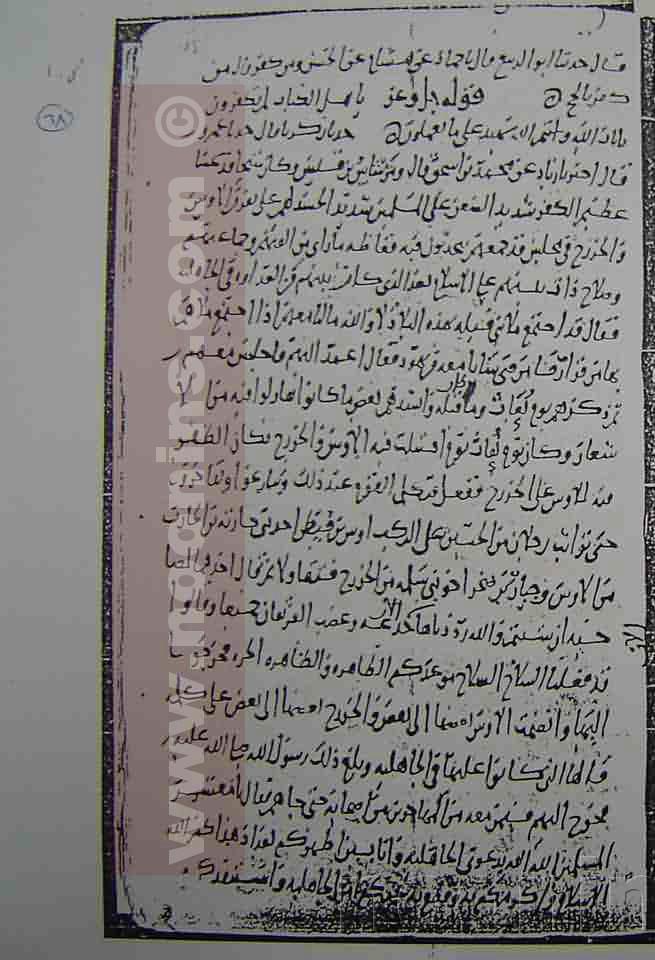 قال حدثنا ابو الربيع قال نا حماد عن هشام عن الحسن ومن كفر قال من
كفر بالحج قوله جل وعز يا اهل الكتاب لم تكفرون
بايات الله والله شهيد على ما تعملون حدثنا زكريا قال حدثنا عمرو
قال اخبرنا زياد عن محمد بن اسحق قال ومر شاس بن قيس وكان شيخا قد عسا
عظيم الكفر شديد الضغن على المسلمين شديد الحسد لهم على نفر من الاوس
والخزرج في مجلس قد جمعهم يتحدثون فيه فغاظه ما راى من الفتهم وجماعتهم
وصلاح ذات بينهم على الاسلام بعد الذي كان بينهم من العداوه في الجاهليه
فقال قد اجتمع ملا بني قيله بهذه البلاد لا والله مالنا معهم اذا اجتمع ملاهم
بها من قرار فامر فتى شابا معه من يهود فقال اعمد اليهم واجلس معهم
ثم ذكرهم يوم بعاث وما كان قبله وانشدهم بعض ما كانوا تقاولوا فيه من الا
شعار وكان يوم بعاث يوم اقتتلت فيه الاوس والخزرج فكان الظفر
فيه للاوس على الخزرج ففعل فتكلم القوم عند ذلك وتنازعوا وتفاخروا
حتى تواثب رجلان من الحيين على الركب اوس بن قيظي احد بني حارثه بن الحارث
من الاوس وجبار بن صخر احد بني سلمه من الخزرج فتقاولا ثم قال احدهما لصا
حبه ان شئتم والله رددناها الان جذعه وغضب الفريقان جميعا وقالوا
قد فعلنا السلاح السلاح موعدكم الظاهره والظاهره الحره فخرجوا
اليها وانضمت الاوس بعضها الى بعض والخزرج بعضها الى بعض على
التي كانوا عليها في الجاهليه وبلغ ذلك رسول الله صلى الله عليه
فخرج اليهم فيمن معه من المهاجرين من اصحابه حتى جاهم فقال يا معشر
المسلمين الله الله ابدعوى الجاهليه وانا بين اظهركم بعد اذ هداكم الله
الى الاسلام واكرمكم به وقطع به عنكم امر الجاهليه واستنقذكم
٦٨
www.mqarnins.com ©